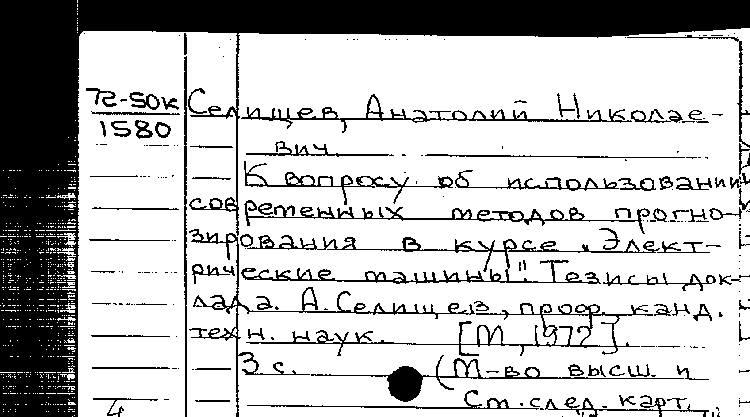 72-50к Селищев, Анатолий Николае-
1580
вич.
К вопросу об использовании
современных методов прогно-
зирования в курсе "Элект-
рические машины". Тезисы док-
лада. А. Селищев, проф. канд.
техн. наук. [М, 1972].
3 с. (М-во высш. и
4 См. след. карт.